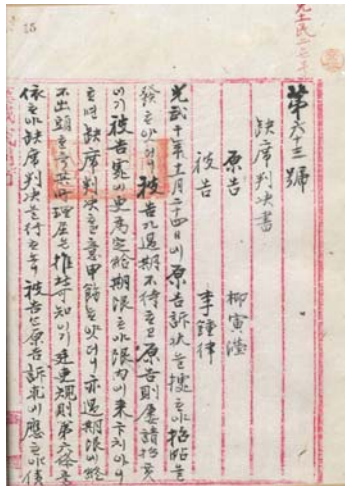 第六十三號
缺席判決書
原告 柳寅
被告 李鍾律
光武十年十一月二十四日에 原告訴狀을 據하야 招帖을
發하얏더니 被告가 過期不待하고 原告則屢請招
이기 被告 更爲定給期限하야 限內에 來卞치아니
하면 缺席判決할 意 飭하얏더니 亦過期限에 終
不出頭하니 其所理屈은 推此可知이기 規則第六條을
依하야 缺席判決을 行하노니 被告는 原告訴求에 應하야 債
15